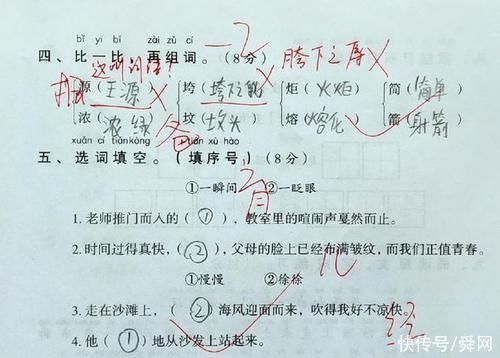 bǐ yi bǐ zài zǔ cí
四、比一比，再组词。（8分） -2 胯下之辱
这叫词语？
源（王源） 垮（垮下能） 炬（火炬） 简（简单）
浓（浓绿） 坟（坟头） 熔（熔化） 箭（射箭）
xuǎn cí tiánkòng tián xù hào
五、选词填空。（填序号）（8分）
①一瞬间 ②一眨眼
1. 老师推门而入的（①），教室里的喧闹声戛然而止。
2. 时间过得真快，（②），父母的脸上已经布满皱纹，而我们正值青春。
①慢慢 ②徐徐
3. 走在沙滩上，（②）海风迎面而来，吹得我好不凉快。
4. 他（①）地从沙发上站起来。
快传号/舜网